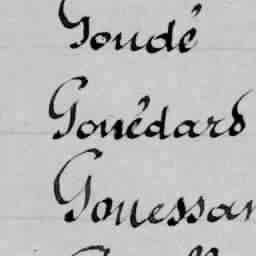 Goudé
Gouédard
Gouessan